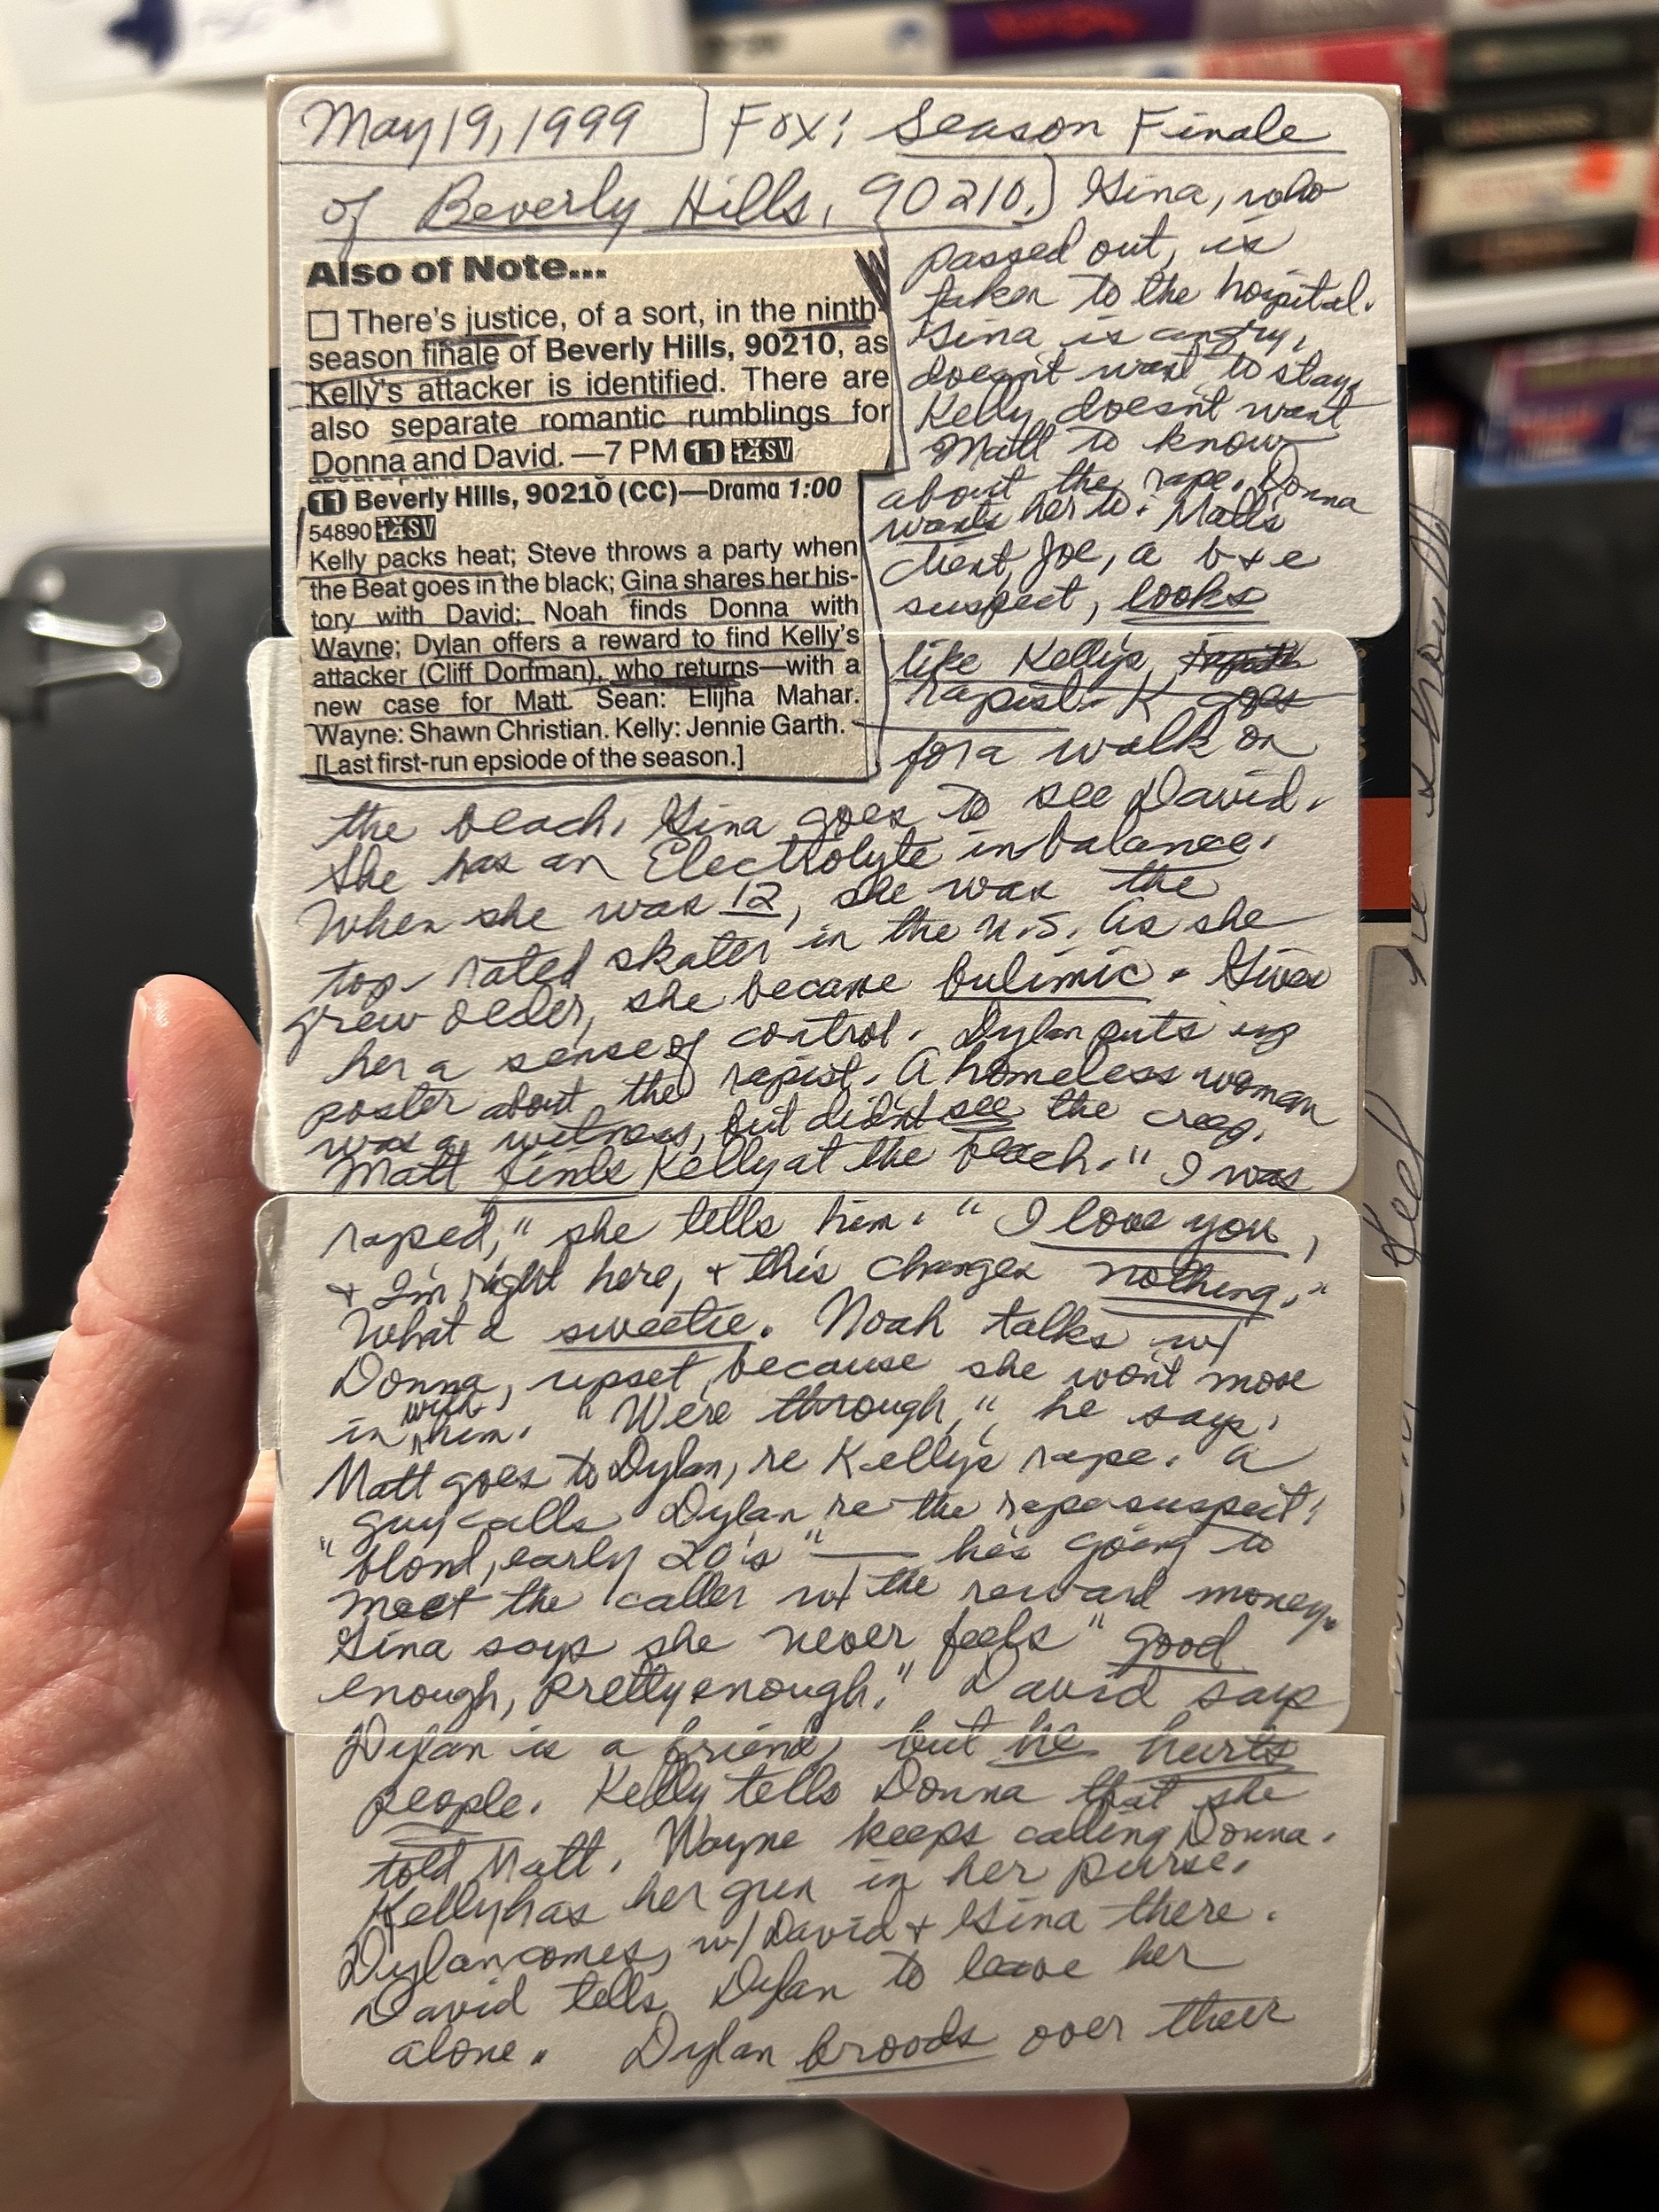 May 19, 1999 Fox: Season Finale
of Beverly Hills, 90210. Gina, who
passed out, is
taken to the hospital.
Gina is angry,
doesn't want to stay.
Kelly doesn't want
Matt to know
about the rape. Donna
wants her to. Matt's
client, Joe, a b+e
suspect, looks
Also of Note...
☐ There's justice, of a sort, in the ninth-
season finale of Beverly Hills, 90210, as
Kelly's attacker is identified. There are
also separate romantic rumblings for
Donna and David. —7 PM 11 14SV
11 Beverly Hills, 90210 (CC)—Drama 1:00
54890 14SV
Kelly packs heat; Steve throws a party when
the Beat goes in the black; Gina shares her his-
tory with David; Noah finds Donna with
Wayne; Dylan offers a reward to find Kelly's
attacker (Cliff Dorfman), who returns—with a
new case for Matt. Sean: Elijha Mahar.
Wayne: Shawn Christian. Kelly: Jennie Garth.
[Last first-run epsiode of the season.]
like Kelly's
rapist. K goes
for a walk on
the beach. Gina goes to see David.
She has an Electrolyte inbalance.
When she was 12, she was the
top-rated skater in the U.S. As she
grew older, she became bulimic. Gives
her a sense of control. Dylan puts up
poster about the rapist. A homeless woman
was a witness, but didn't see the creep.
Matt finds Kelly at the beach. "I was
raped," she tells him. "I love you,
+ I'm right here, + this changes nothing."
What a sweetie. Noah talks w/
Donna, upset because she won't move
in with him. "We're through," he says.
Matt goes to Dylan, re Kelly's rape. A
guy calls Dylan re the rape suspect:
"blond, early 20's" — he's going to
meet the caller w/ the reward money.
Gina says she never feels "good
enough, pretty enough." David says
Dylan is a friend, but he hurts
people. Kelly tells Donna that she
told Matt. Wayne keeps calling Donna.
Kelly has her gun in her purse.
Dylan comes, w/ David + Gina there.
David tells Dylan to leave her
alone. Dylan broods over their